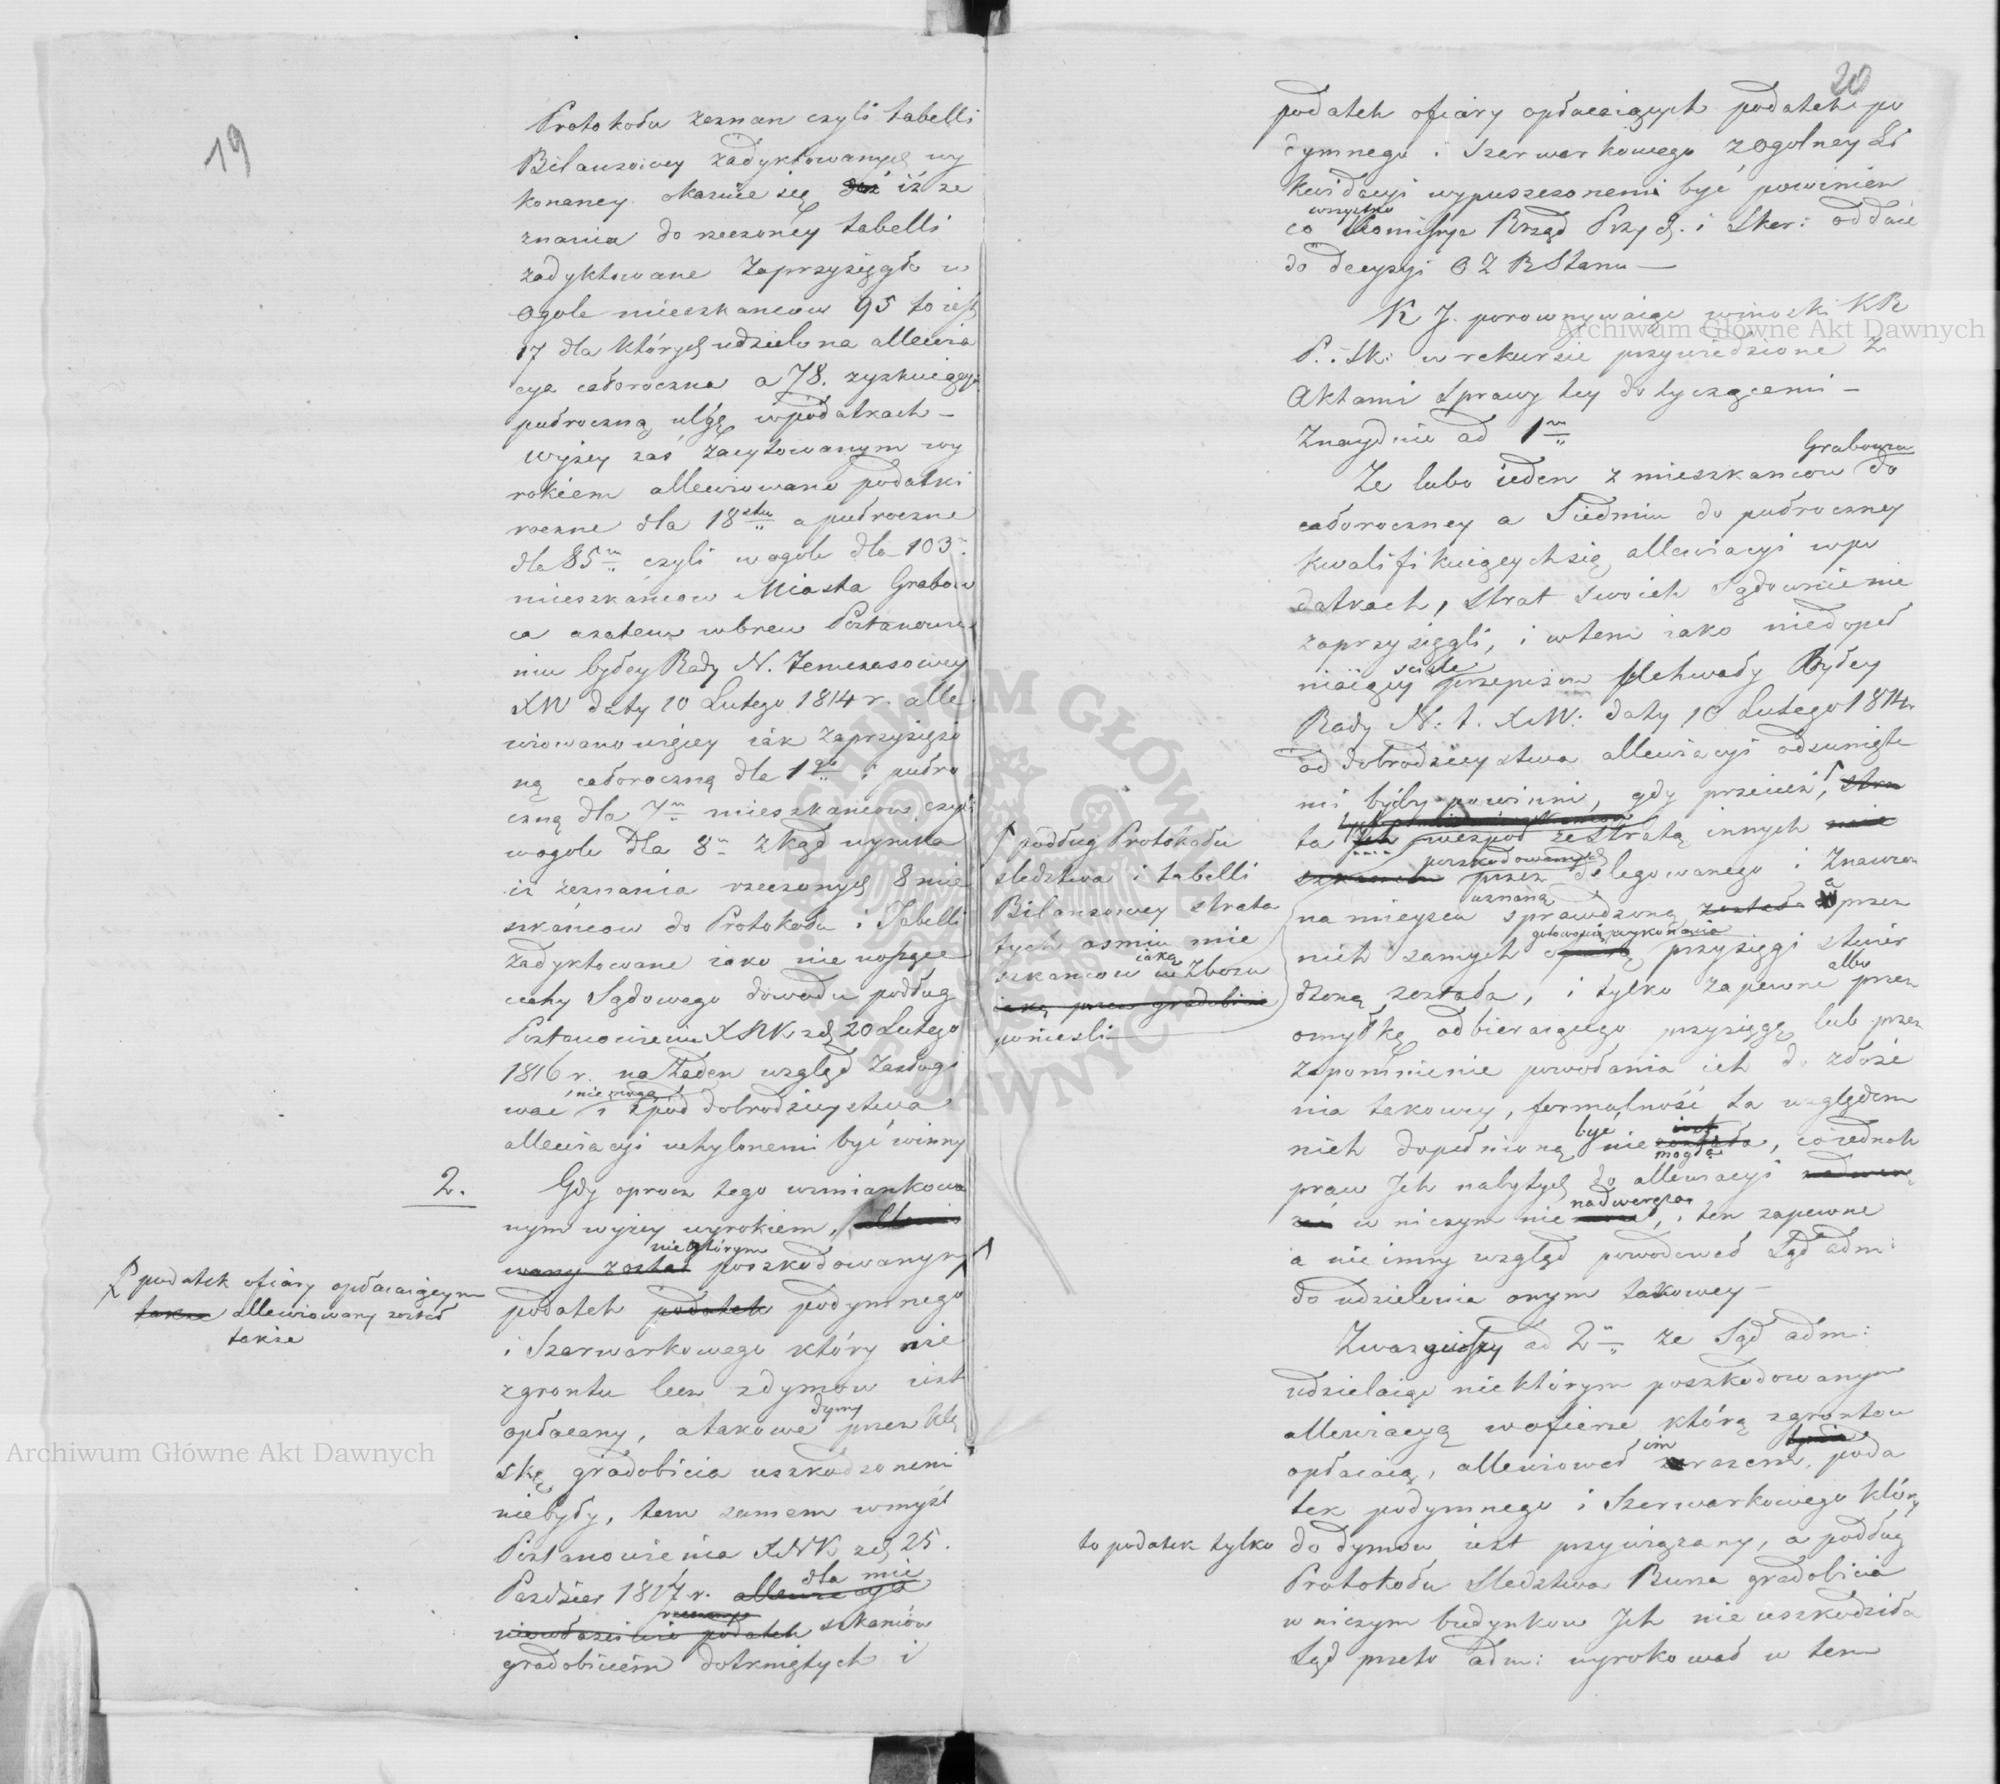 19
Protokołu zeznan czyli tabelli
Bilansowey zadyktowanych wy
konaney okazuie się iż ze
znania do rzeczoney tabelli
zadyktowane zaprzysięgło w
ogole mieszkancow 95 to iest
17 dla których udzielona allewia
cya całoroczna a 78. zyskuiących
pułroczną ulgę w podatkach –
Wyżey zaś zacytowanym wy
rokiem allewiowano podatki
roczne dla 18stu a pułroczne
dla 85u czyli w ogole dla 103
mieszkańcow Miasta Grabow
ca azatem wbrew Postanowie
niu byłey Rady N. Temczasowey
XW daty 10 Lutego 1814 r. alle
wiowano więcey iák zaprzysiężo
ną całoroczną dla 1go i pułro
czną dla 7u mieszkancow czyli
w ogole dla 8u zkąd wynika
iż zeznania rzeczonych 8 mie
szkáncow do Protokołu i Tabelli
zadyktowane iako nie noszące
cechy Sądowego dowodu podług
Postanowienia XNK z d. 20 Lutego
1816 r. na żaden wzgląd zasługi
wac nie mogą i z pod dobrodzieystwa
allewiacyi uchylonemi być winny
2. Gdy oprocz tego wzmiankowa
nym wyżey wyrokiem, allewio
wany został niektórym poszkodowanym
podatek podatek podymnego
i Szarwarkowego który nie
z gruntu lecz z dymow iest
opłacany, a takowe dymy przez klę
skę gradobicia uszkodzonemi
niebyły, tem samem w myśl
Postanowienia XNK z d. 25.
Pazdzier 1817 r. allewiacya dla mie
niewłaściwie podatek szkańcow
gradobiciem dotkniętych i
podatek ofiary opłacaiącym
także allewiowany został
także
podług Protokołu
sledztwa i tabelli
Bilansowey strata
tych osmiu mie
szkancow iaką w Zbożu
iaką przez gradobicie
poniesli –
20
podatek ofiary opłacaiących podatek po
dymnego i Szarwarkowego z ogolney Li
kwidacyi wypuszczonemi być powinien
co wszystko Kommissya Rząd Przych. i Skar: oddaie
do decyzyi O Z R Stanu —
K J. porownywaiąc wnioski KR
P. i Sk: w rekursie przywiedzione z
Aktami Sprawy tey dotyczącemi –
Znayduie ad 1m
Ze lubo ieden z mieszkancow Grabowca do
całoroczney a Siedmiu do pułroczney
kwalifikuiących się allewiacyi w po
datkach, strat swoich Sądownie nie
zaprzysięgli, i w tem iako niedopeł
niaiący scisle przepisow Uchwały Byłey
Rady N: t. XW: daty 10 Lutego 1814 r.
od dobrodzieystwa allewiacyi odsunięte
mi byćby powinni, gdy przecież, stra
ta Ich wespoł ze Stratą innych
poszkodowanych przez delegowanego i Znawcow
na mieyscu uznaną sprawdzoną została a przez
nich samych gotowością wykonania przysięgi stwier
dzoną została, i tylko zapewne albo przez
omyłkę odbieraiącego przysięgę lub przez
zapomnienie powołania ich do złoże
nia takowey, formalność ta względem
nich dopełnioną być nie mogła, co iednak
praw Ich nabytych do allewiacyi nadwerę
w niczym nie nadweręża, i ten zapewne
a nie inny wzgląd powodował Sąd adm:
do udzielenia onym takowey –
Zważaiąc ad 2m ze Sąd adm:
udzielaiąc niektórym poszkodowanym
allewiacyą w ofierze którą z gruntow
opłacaią, allewiował im zarazem poda
tek podymnego i Szarwarkowego który
to podatek tylko do dymow iest przywiązany, a podług
Protokołu Sledztwa Burza gradobicia
w niczym budynkow Ich nie uszkodziła
Sąd przeto adm: wyrokował w tem
Archiwum Główne Akt Dawnych
Archiwum Główne Akt Dawnych